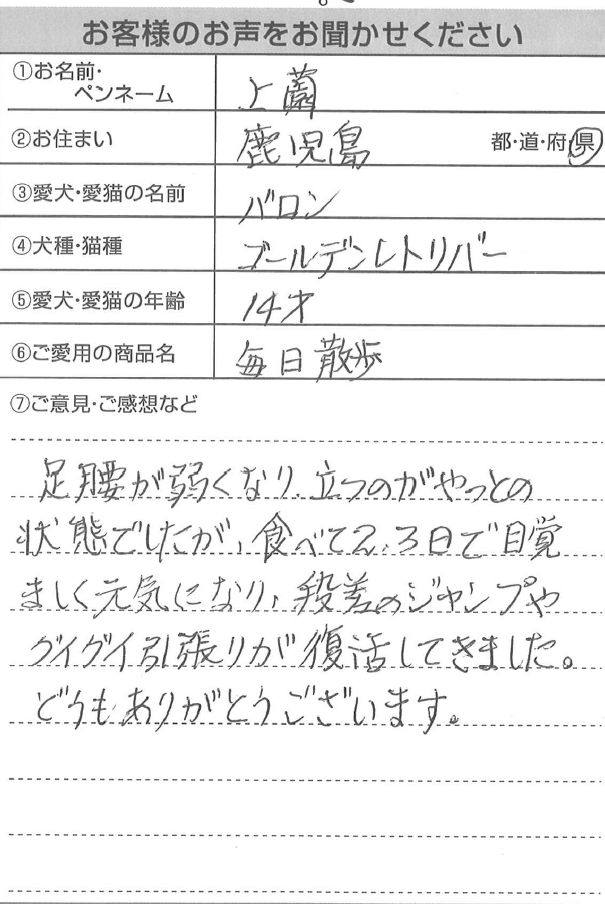 お客様のお声をお聞かせください
①お名前・
ペンネーム
上薗
②お住まい
鹿児島
都・道・府・県
③愛犬・愛猫の名前
バロン
④犬種・猫種
ゴールデンレトリバー
⑤愛犬・愛猫の年齢
14才
⑥ご愛用の商品名
毎日散歩
⑦ご意見・ご感想など
足腰が弱くなり、立つのがやっとの
状態でしたが、食べて2、3日で目覚
ましく元気になり、段差のジャンプや
グイグイ引張りが復活してきました。
どうもありがとうございます。